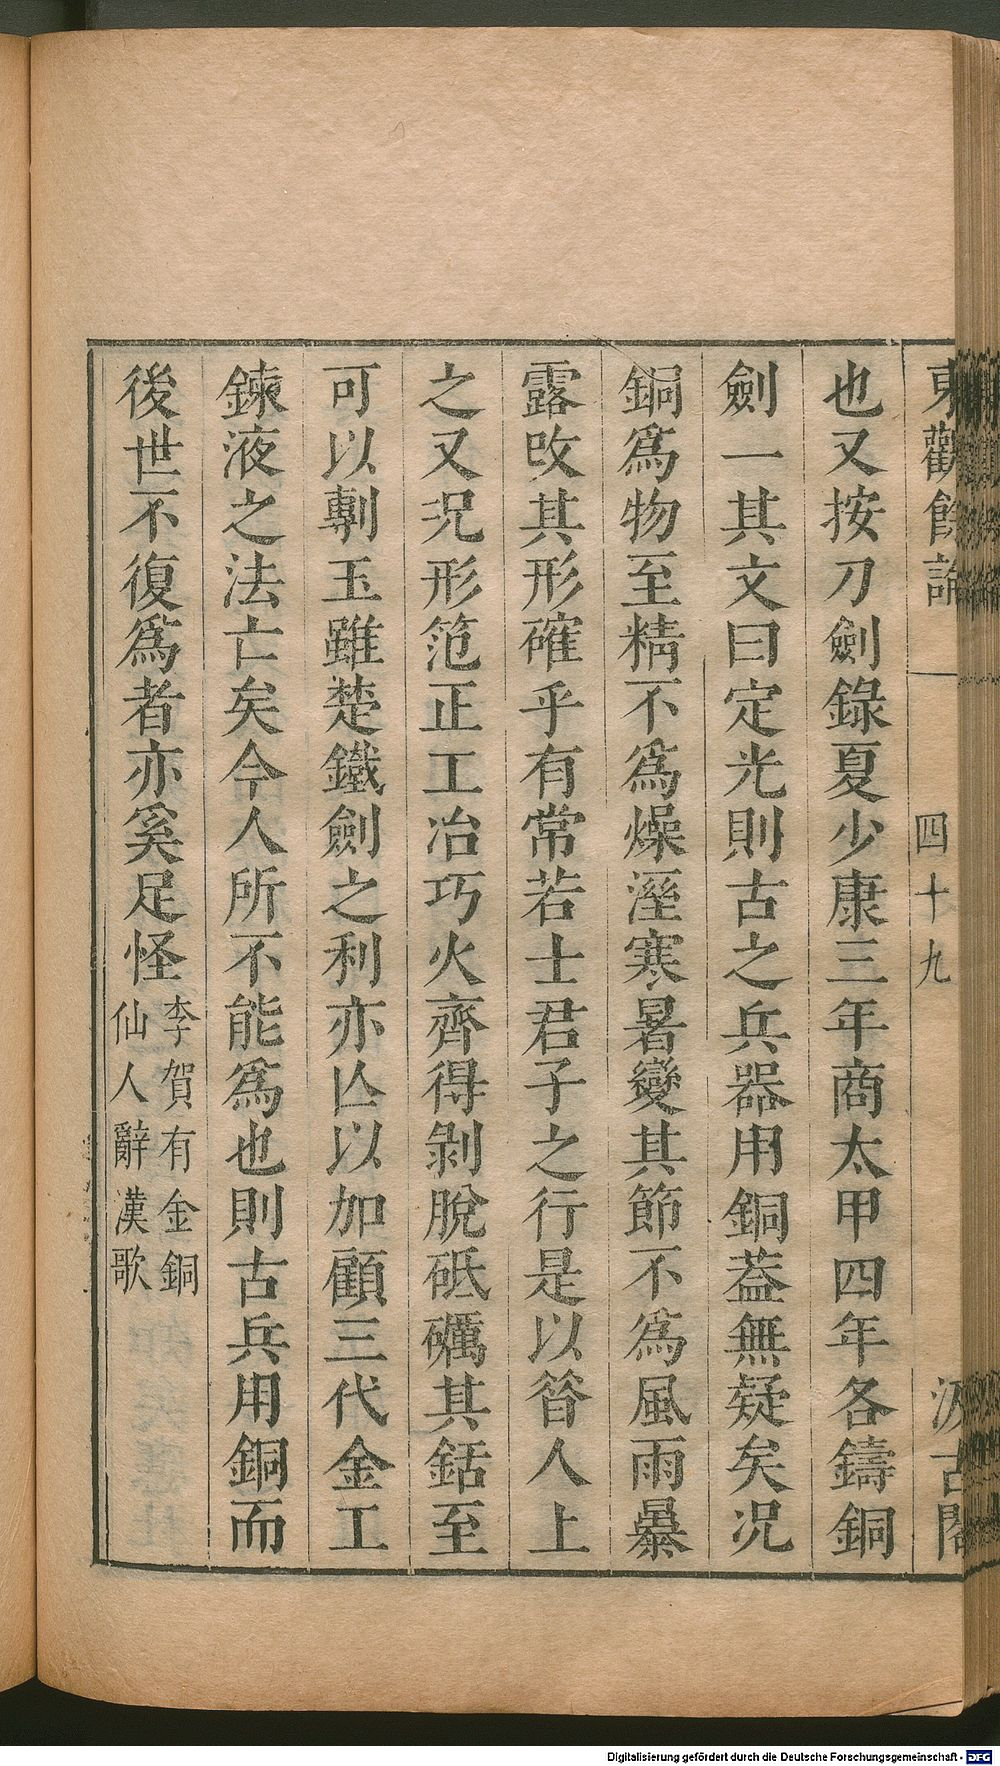 東觀餘論 一 四十九 汲古閣
也又按刀劍錄夏少康三年商太甲四年各鑄銅
劍一其文曰定光則古之兵器用銅葢無疑矣况
銅爲物至精不爲燥溼寒暑變其節不爲風雨暴
露改其形確乎有常若士君子之行是以昝人上
之又况形笵正工冶巧火齊得剝脫砥礪其銛至
可以剸玉雖楚鐵劍之利亦亾以加顧三代金工
鍊液之法亡矣今人所不能爲也則古兵用銅而
後世不復爲者亦奚足怪
李賀有金銅
仙人辭漢歌
Digitalisierung gefördert durch die Deutsche Forschungsgemeinschaft - DFG